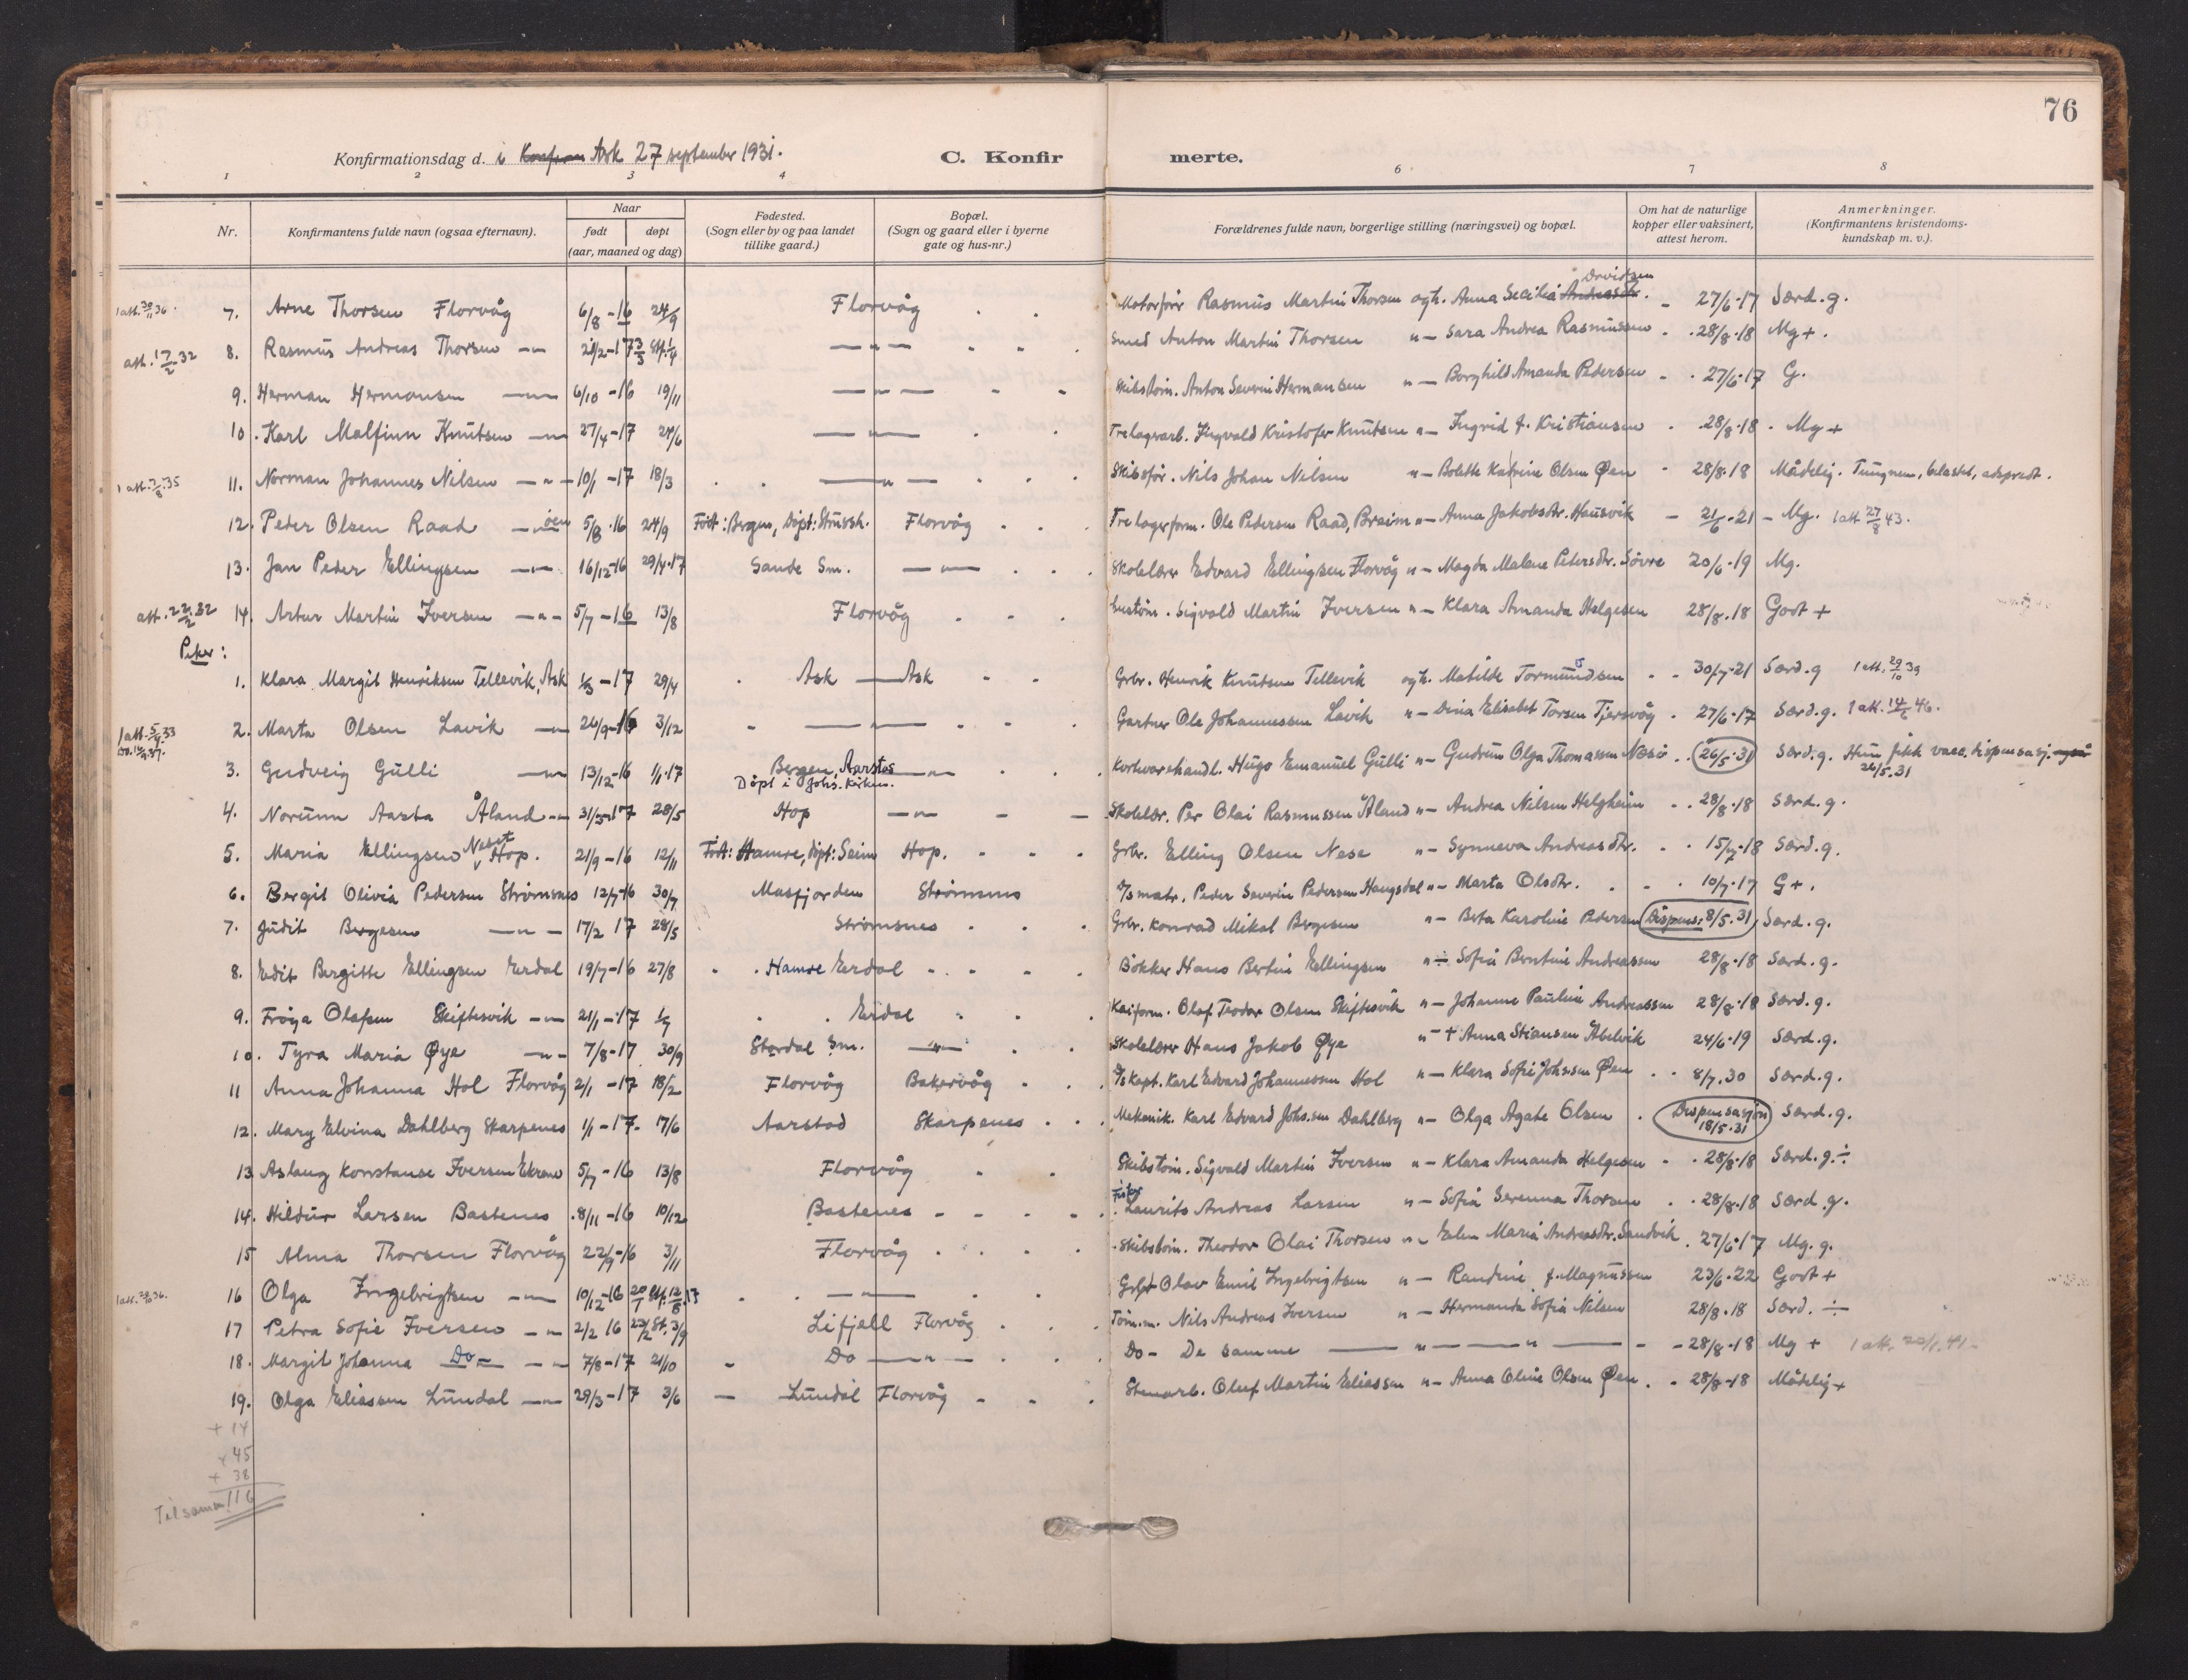 76
Konfirmationsdag d. i Ask 27 september 1931.
C. Konfirmerte.
1 2 3 4 6 7 8
Nr.
Konfirmantens fulde navn (ogsaa efternavn).
Naar
født
døpt
(aar, maaned og dag)
Fødested.
(Sogn eller by og paa landet
tillike gaard.)
Bopæl.
(Sogn og gaard eller i byerne
gate og hus-nr.)
Forældrenes fulde navn, borgerlige stilling (næringsvei) og bopæl.
Om hat de naturlige
kopper eller vaksinert,
attest herom.
Anmerkninger.
(Konfirmantens kristendoms-
kundskap m. v.).
1 att. 30/11 36. 7. Arne Thorsen Florvåg 6/8 - 16 24/9 Florvåg Motorfør Rasmus Martin Thorsen ogh. Anna Secilia Andreasdr. Davidsen 27/6-17 Særd. g.
att. 17/2 32 8. Rasmus Andreas Thorsen -"- 21/2-17 -"- Smed Anton Martin Thorsen "- Sara Andrea Rasmussen 28/8-18 Mg+.
9. Herman Hermansen -"- 6/10 -16 19/11 -"- Skibstøm. Anton Severin Hermansen "- Borghild Amanda Pedersen 27/6-17 G.
10. Karl Malfinn Knutsen -"- 27/4-17 24/6 -"- Trelagerarb. Ingvald Kristofer Knutsen "- Ingrid f. Kristiansen 28/8-18 Mg +
11. Norman Johannes Nilsen -"- 10/1 -17 18/3 -"- Skibsfør. Nils Johan Nilsen "- Bolette Katrine Olsen Øen 28/8-18 Mådelig. Tungnem, adspredt.
12. Peder Olsen Raad -"- øen 5/8-16 24/9 Født: Bergen, Døpt: Florvåg Trelagerform. Ole Pedersen Raad, "- Anna Jakobsdr. Hausvik 21/6-21 Mg. 1 att 27/8 43.
13. Jan Peder Ellingsen -"- 16/12-16 29/4-17 Sande Sm. -"- Skolelærer Edvard Ellingsen Florvåg "- Magda Malene Petersdr. Søvre 20/6-19 Mg.
att. 22/2 32 14. Artur Martin Iversen -"- 5/7-16 13/8 Florvåg Sigvald Martin Iversen "- Klara Amanda Helgesen 28/8-18 Godt +
Piker:
1. Klara Margit Henriksen Tellevik, Ask 1/3-17 29/4 Ask - Ask Grbr. Henrik Knutsen Tellevik ogh. Matilde Tormundsen 30/7-21 Særd. g 1 att. 29/10 39
1 att. 5/9 33 2. Marta Olsen Lavik -"- 26/9-16 3/12 -"- Gartner Ole Johannessen Lavik "- Dina Elisabet Torsen Tjersvåg 27/6-17 Særd. g. 1 att. 14/6 46.
3. Gudveig Gulli -"- 13/12-16 1/1-17 Bergen, Aarstad -"- Hugo Emanuel Gulli "- Gudrun Olga Thomassen Næsø 26/5-31 Særd. g. Hun fikk vacc. dispensasj.
Døpt i Johs. kirken. 26/5.31
4. Norunn Aasta Åland -"- 31/3-17 28/5 Hop -"- Skolelær. Per Olai Rasmussen Åland "- Andrea Nilsen Helgheim 28/8-18 Særd. g.
5. Maria Ellingsen Neset Hop. 21/9-16 12/11 Født: Hamre, døpt: Seim Hop. Grbr. Elling Olsen Nese "- Synneva Andreasdtr. 15/7-18 Særd. g.
6. Bergit Olivia Pedersen Strømsnes 12/7-16 30/7 Masfjorden Strømsnes D/s matr. Peder Severin Pedersen Haugsdal "- Marta Olsdtr. 10/7-17 G+.
7. Judit Bergesen -"- 17/2 17 28/5 Strømsnes Grbr. Konrad Mikal Bergesen "- Berta Karoline Pedersen Dispens. 8/5.31 Særd. g.
8. Edit Bergitte Ellingsen Erdal 19/7-16 27/8 Hamre Erdal Bøkker Hans Bertin Ellingsen "- Sofia Berntine Andreassen 28/8-18 Særd. g.
9. Frøya Olafsen Skiftesvik -"- 21/1-17 1/7 Erdal Kaiform. Olaf Teodor Olsen Skiftesvik "- Johanne Pauline Andreassen 28/8-18 Særd. g.
10. Tyra Maria Øye -"- 7/8-17 30/9 Stordal Sm. -"- Skolelærer Hans Jakob Øye "- + Anna Stiansen Åbelvik 24/6-19 Særd. g.
11 Anna Johanna Hol Florvåg 2/1 -17 18/2 Florvåg Bakervåg D/s Kapt. Karl Edvard Johannessen Hol "- Klara Sofie Johnsen Øen 8/7.30 Særd. g.
12. Mary Elvina Dahlberg Skarpenes 1/1-17 17/6 Aarstad Skarpenes Mekanik. Karl Edvard Johs.sen Dahlberg "- Olga Agate Olsen Dispensasjon 18/5.31 Særd. g.
13 Aslaug Konstanse Iversen Ekren 5/7-16 13/8 Florvåg Skibstøm. Sigvald Martin Iversen "- Klara Amanda Helgesen 28/8-18 Særd. g. ÷
14. Hildur Larsen Bastenes 8/11-16 10/12 Bastenes Fisker Laurits Andreas Larsen "- Sofia Serenna Thorsen 28/8-18 Særd. g.
15 Alma Thorsen Florvåg 22/9-16 3/11 Florvåg Skibstøm. Theodor Olai Thorsen "- Elen Maria Andreasdtr. Sandvik 27/6-17 Mg. g.
16 Olga Ingebrigtsen -"- 10/12-16 -"- Olav Emil Ingebrigtsen "- Randine f. Magnussen 23/6-22 Godt +
17 Petra Sofie Iversen -"- 2/2 16 Lifjell Florvåg Tøm.m. Nils Andreas Iversen "- Hermanda Sofia Nilsen 28/8-18 Særd. ÷
18. Margit Johanna Do- -"- 7/8-17 21/10 Do -"- Do- De samme -"-"- 28/8-18 Mg + 1 att. 20/1.41
19. Olga Eliassen Lundal -"- 29/3-17 3/6 Lundal Florvåg Stenarb. Oluf Martin Eliassen "- Anna Oline Olsen Øen 28/8-18 Mådelig +
+ 14
+ 45
+ 38
Tilsammen 116